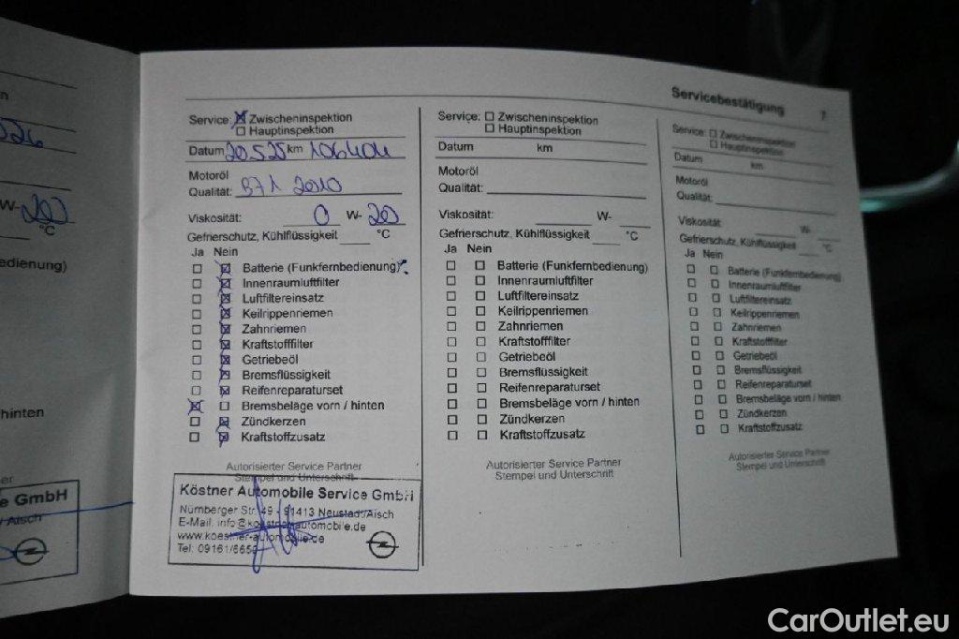 Servicebestätigung 7
Service: Zwischeninspektion
Hauptinspektion
Datum 20.5.25 km 106404
Motoröl
Qualität: B71 2010
Viskosität: 0 W- 20
Gefrierschutz, Kühlflüssigkeit °C
Ja Nein
Batterie (Funkfernbedienung)
Innenraumluftfilter
Luftfiltereinsatz
Keilrippenriemen
Zahnriemen
Kraftstofffilter
Getriebeöl
Bremsflüssigkeit
Reifenreparaturset
Bremsbeläge vorn / hinten
Zündkerzen
Kraftstoffzusatz
Autorisierter Service Partner
Stempel und Unterschrift
Köstner Automobile Service GmbH
Nürnberger Str. 49 - 91413 Neustadt/Aisch
E-Mail: info@koestner-automobile.de
www.koestner-automobile.de
Tel: 09161/8
Service: Zwischeninspektion
Hauptinspektion
Datum km
Motoröl
Qualität:
Viskosität: W-
Gefrierschutz, Kühlflüssigkeit °C
Ja Nein
Batterie (Funkfernbedienung)
Innenraumluftfilter
Luftfiltereinsatz
Keilrippenriemen
Zahnriemen
Kraftstofffilter
Getriebeöl
Bremsflüssigkeit
Reifenreparaturset
Bremsbeläge vorn / hinten
Zündkerzen
Kraftstoffzusatz
Autorisierter Service Partner
Stempel und Unterschrift
Service: Zwischeninspektion
Hauptinspektion
Datum km
Motoröl
Qualität:
Viskosität: W-
Gefrierschutz, Kühlflüssigkeit °C
Ja Nein
Batterie (Funkfernbedienung)
Innenraumluftfilter
Luftfiltereinsatz
Keilrippenriemen
Zahnriemen
Kraftstofffilter
Getriebeöl
Bremsflüssigkeit
Reifenreparaturset
Bremsbeläge vorn / hinten
Zündkerzen
Kraftstoffzusatz
Autorisierter Service Partner
Stempel und Unterschrift
W- 20
°C
edienung)
hinten
e GmbH
Aisch
CarOutlet.eu